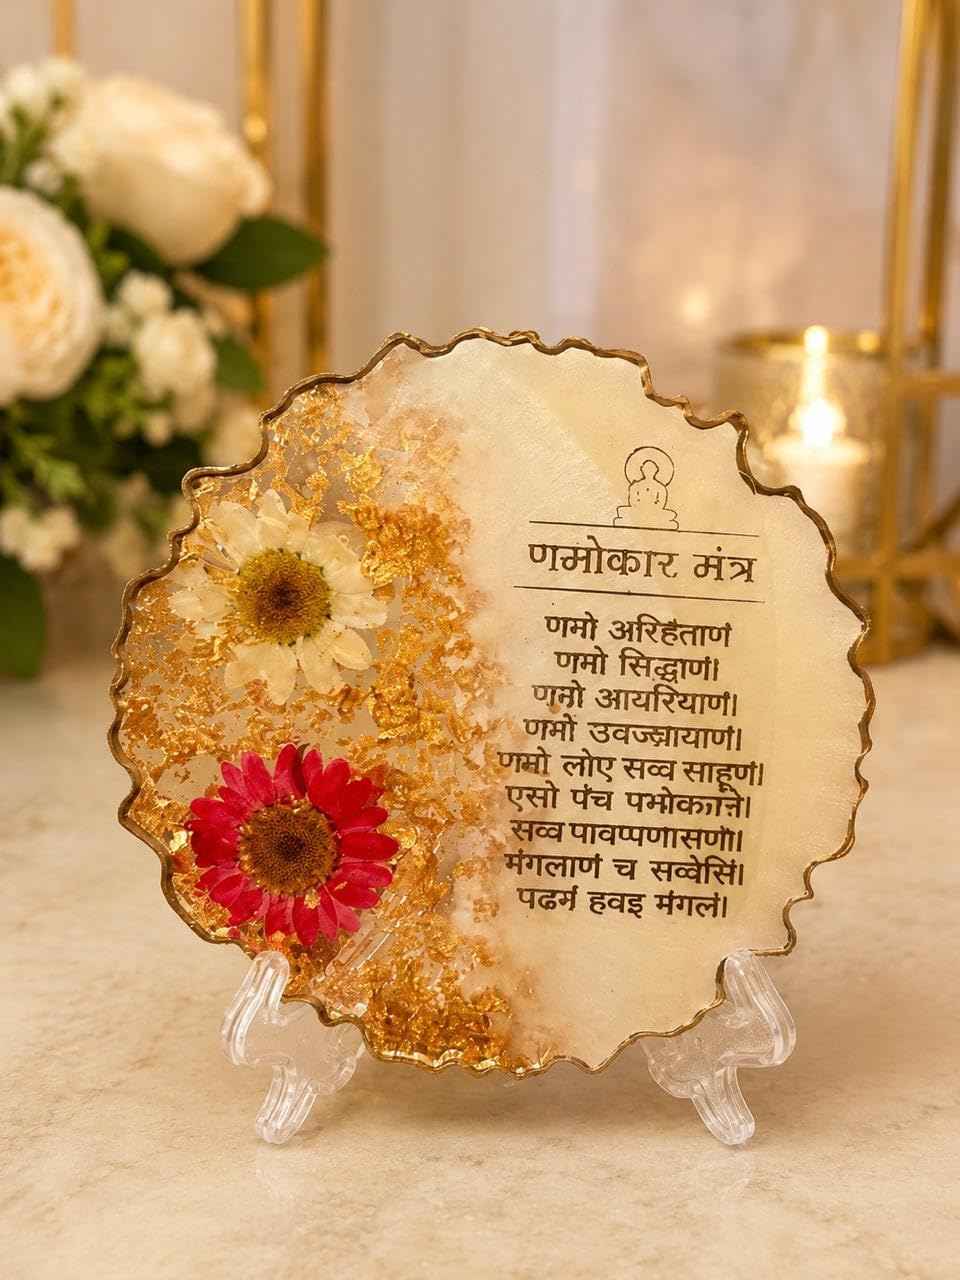 णमोकार मंत्र
णमो अरिहंताणं
णमो सिद्धाणं।
णमो आयरियाणं।
णमो उवज्झायाणं।
णमो लोए सव्व साहूणं।
एसो पंच
सव्व पावप्पणासणो।
मंगलाणं च सव्वेसिं।
पढमं हवइ मंगलं।